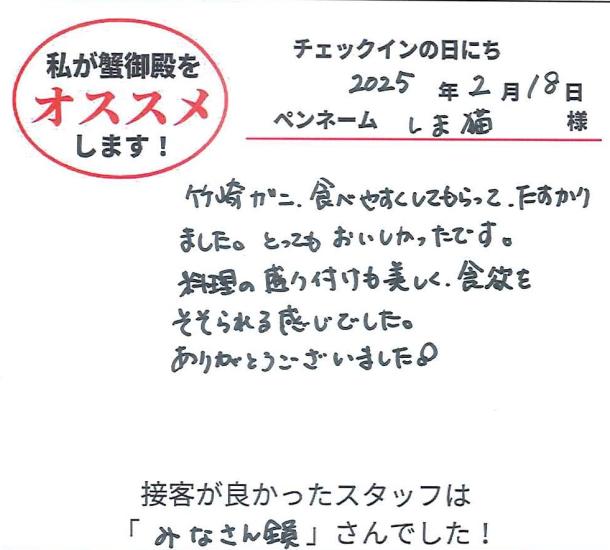 私が蟹御殿を
オススメ
します！
チェックインの日にち
2025年2月18日
ペンネーム しま猫 様
竹崎ガニ、食べやすくしてもらって、たすかり
ました。とってもおいしかったです。
料理の盛り付けも美しく、食欲を
そそられる感じでした。
ありがとうございました
接客が良かったスタッフは
「みなさん」さんでした！